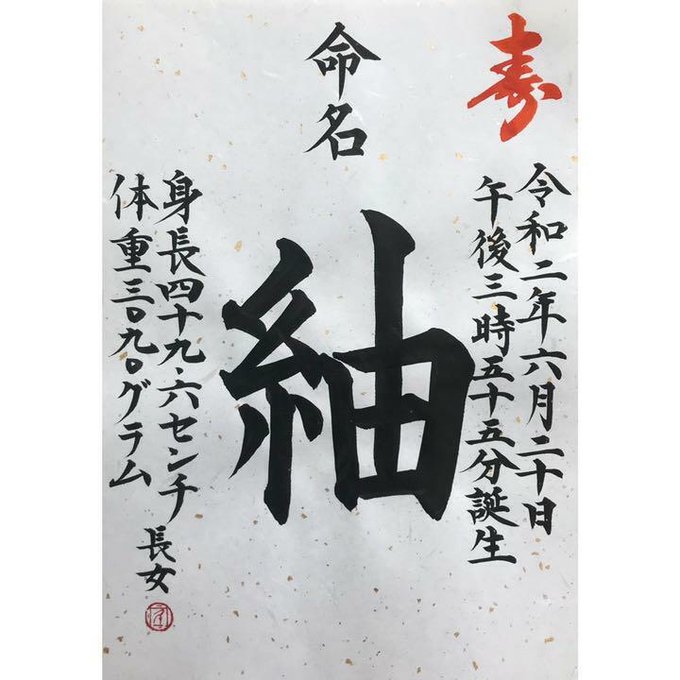 寿
令和二年六月二十日
午後三時五十五分誕生
命名
紬
身長四十九・六センチ
体重三〇九〇グラム
長女